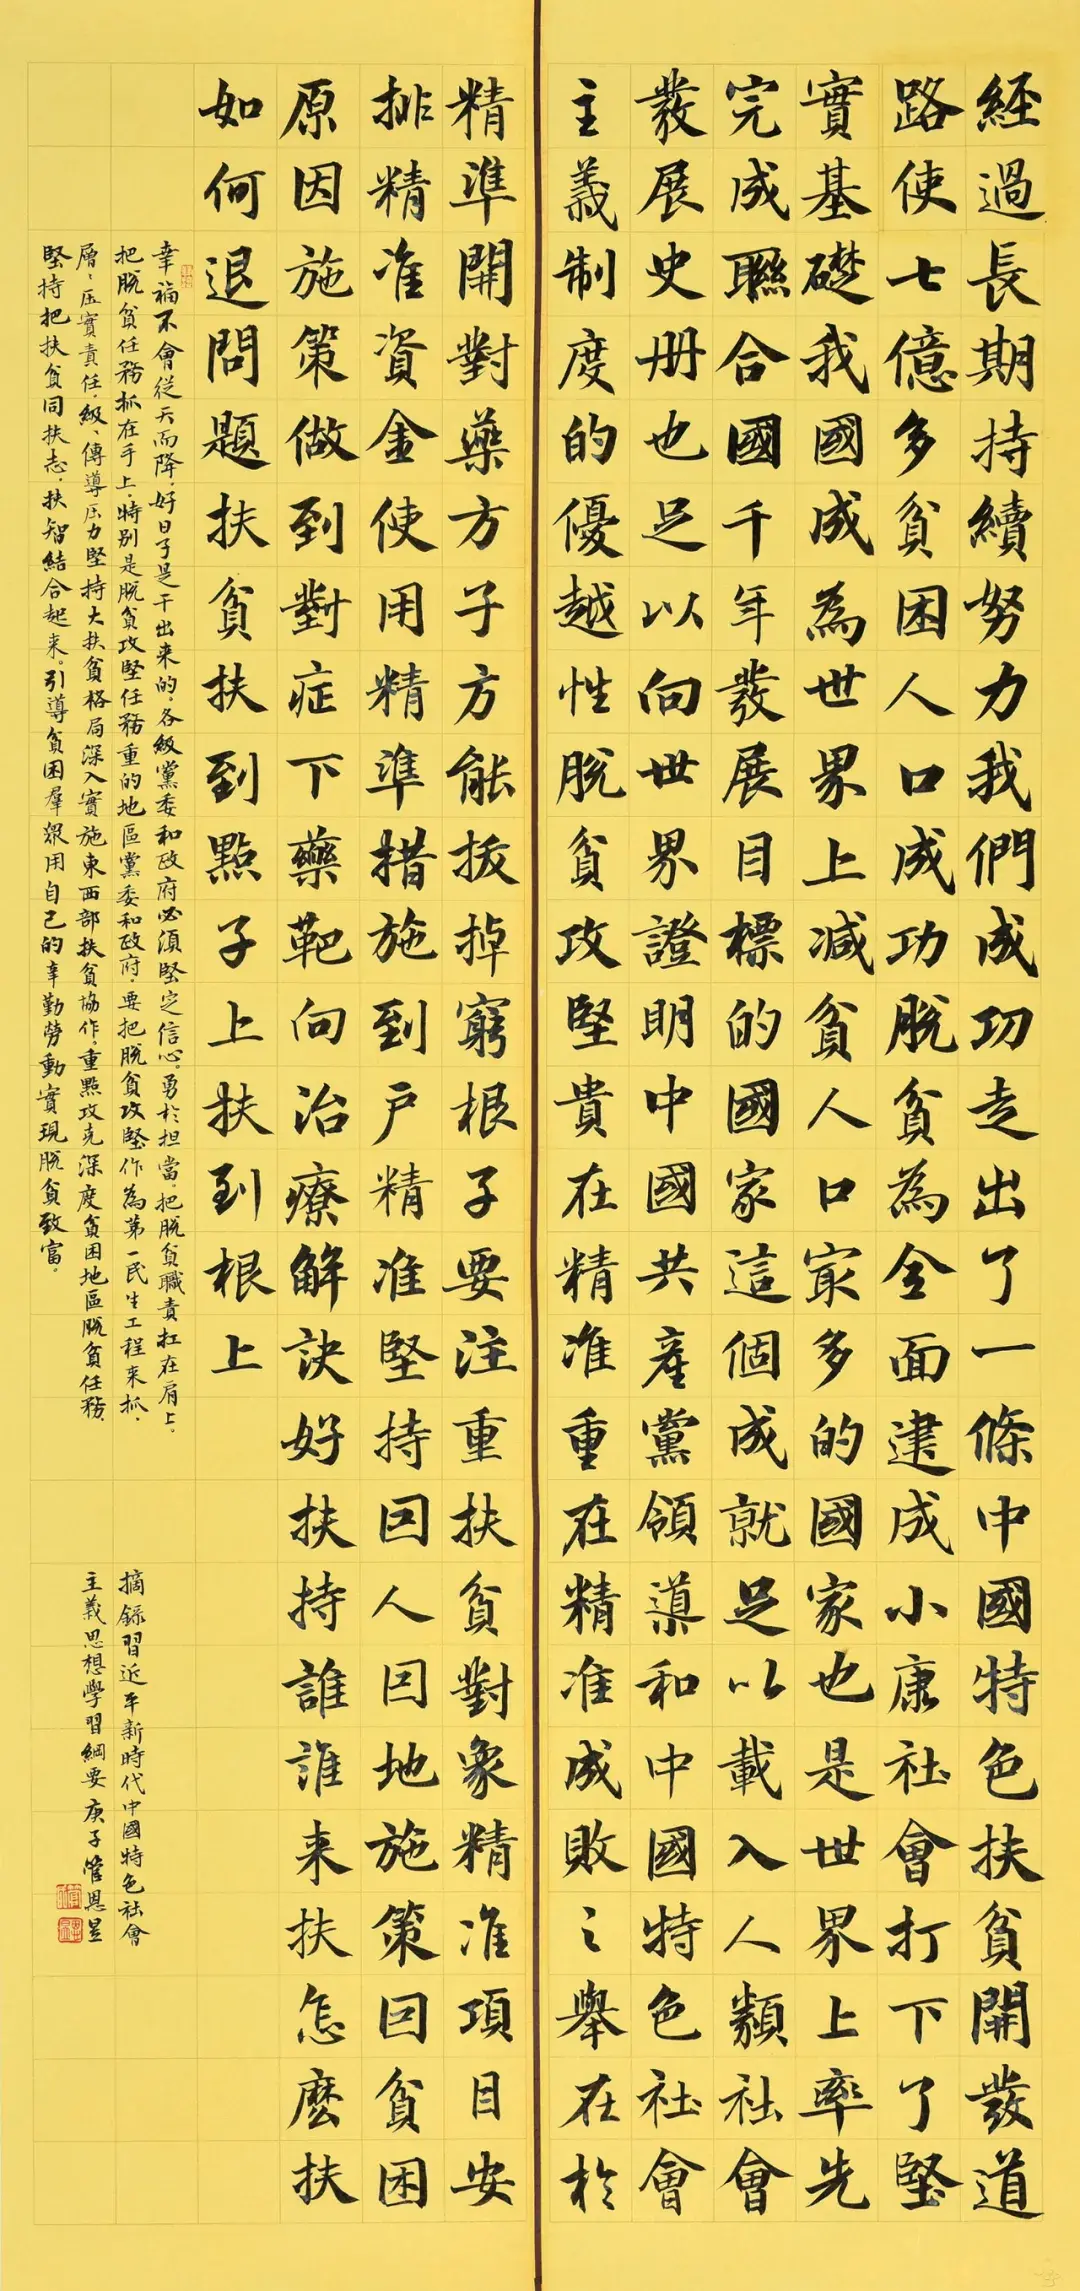 經過長期持續努力我們成功走出了一條中國特色扶貧開發道
路使七億多貧困人口成功脫貧為全面建成小康社會打下了堅
實基礎我國成為世界上減貧人口最多的國家也是世界上率先
完成聯合國千年發展目標的國家這個成就足以載入人類社會
發展史册也足以向世界證明中國共產黨領導和中國特色社會
主義制度的優越性脫貧攻堅貴在精准重在精准成敗之舉在於
精準開對藥方子方能拔掉窮根子要注重扶貧對象精准項目安
排精准資金使用精準措施到户精准堅持因人因地施策因貧困
原因施策做到對症下藥靶向治療解決好扶持誰誰来扶怎麽扶
如何退問題扶貧扶到點子上扶到根上
幸福不會從天而降，好日子是干出来的。各級黨委和政府必須堅定信心。勇於担當。把脫貧職責扛在肩上。
把脫貧任務抓在手上，特别是脫貧攻堅任務重的地區黨委和政府，要把脫貧攻堅作為第一民生工程来抓，
層、压實責任，級、傳導压力堅持大扶貧格局深入實施東西部扶貧協作，重點攻克深度貧困地區脫貧任務，
堅持把扶貧同扶志，扶智結合起来。引導貧困羣眾用自己的辛勤勞動實現脫貧致富。
摘錄習近平新時代中國特色社會
主義思想學習綱要 庚子 管恩昱